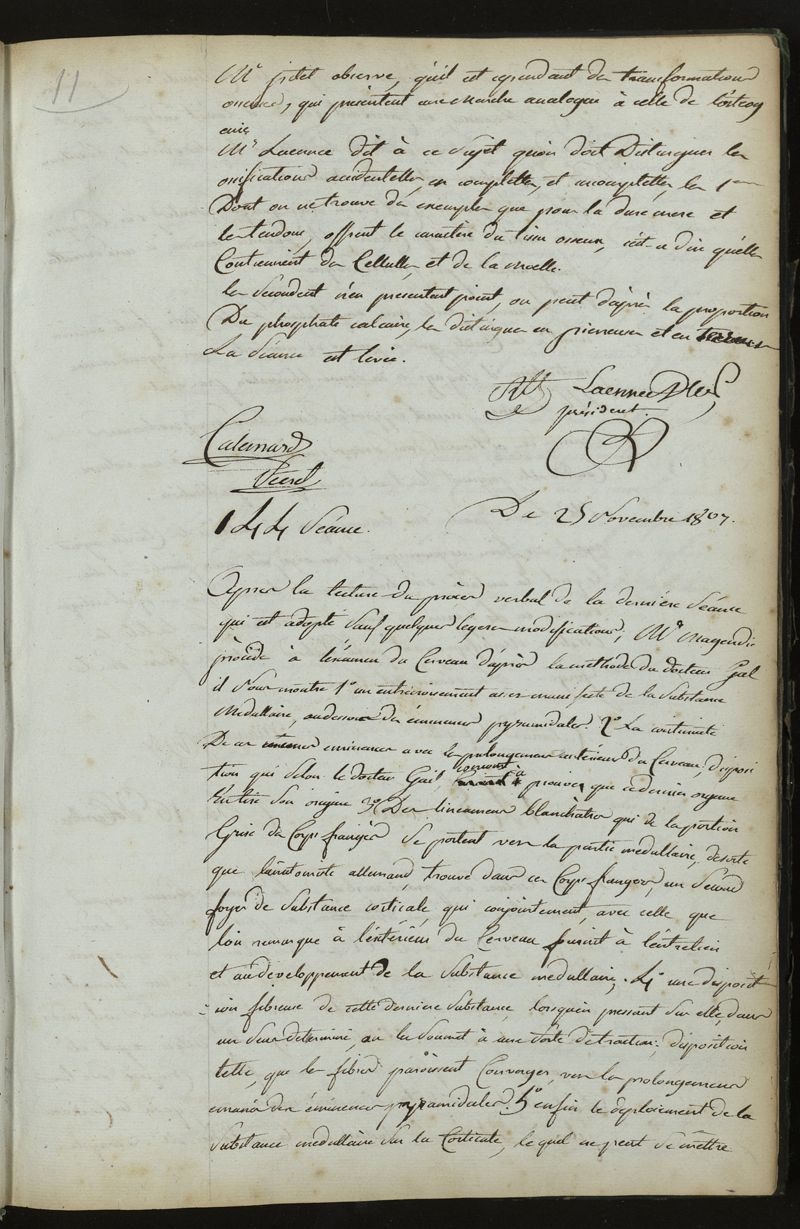 11
Mr jadet observe, qu'il est cependant des transformations
osseuses, qui présentent une marche analogue à celle de l'osteog
enie
Mr Laennec dit à ce sujet qu'on doit Distinguer les
ossifications accidentelles en complettes, et incomplettes, les 1eres
Dont on ne trouve des exemples que pour la dure mere et
les tendons, offrent le caractère du tissu osseux, c'est-a dire qu'elles
Contiennent des Cellules, et de la moelle.
les Secondes n'en presentent point, on peut d'après la proportion
Du phosphate calcaire, les distinguer en pierreuses et en
La Séance est levée.
Laennec DM
président.
Calemard
Secret
144 Séance. De 25 Novembre 1807.
Après la lecture du procès verbal de la dernière Séance
qui est adopté Sauf quelques legeres modifications, Mr Magendie
procède à l'examen du Cerveau d'après la methode du docteur Gal
il Nous montre 1o un entrecroisement assez manifeste de la Substance
Medullaire, audessous des éminences pyramidales. 2o La continuité
De ces eminences avec les prolongemens antérieurs du Cerveau, disposi
tion qui selon le docteur Gal, à prouver que ce dernier organe
tire Son origine 3o Des lineamens blanchatres qui de la portion
Grise des Corps frangés Se portent vers la partie medullaire, desorte
que l'anatomiste allemand trouve dans ces Corps frangés, un Second
foyer de Substance corticale, qui conjointement, avec celle que
l'on remarque à l'extérieur du Cerveau fournit à l'entretien
et au developpement de la Substance medullaire, 4o une disposit
ion fibreuse de cette derniere Substance, lorsqu'en pressant Sur elle, dans
un Sens determiné, on la Soumet à une Sorte de traction; disposition
telle, que les fibres paroissent Converger, vers les prolongemens
emanés des éminences pyramidales. 5o enfin le deploiement de la
Substance medullaire Sur la Corticale, le quel ne peut Séméttre